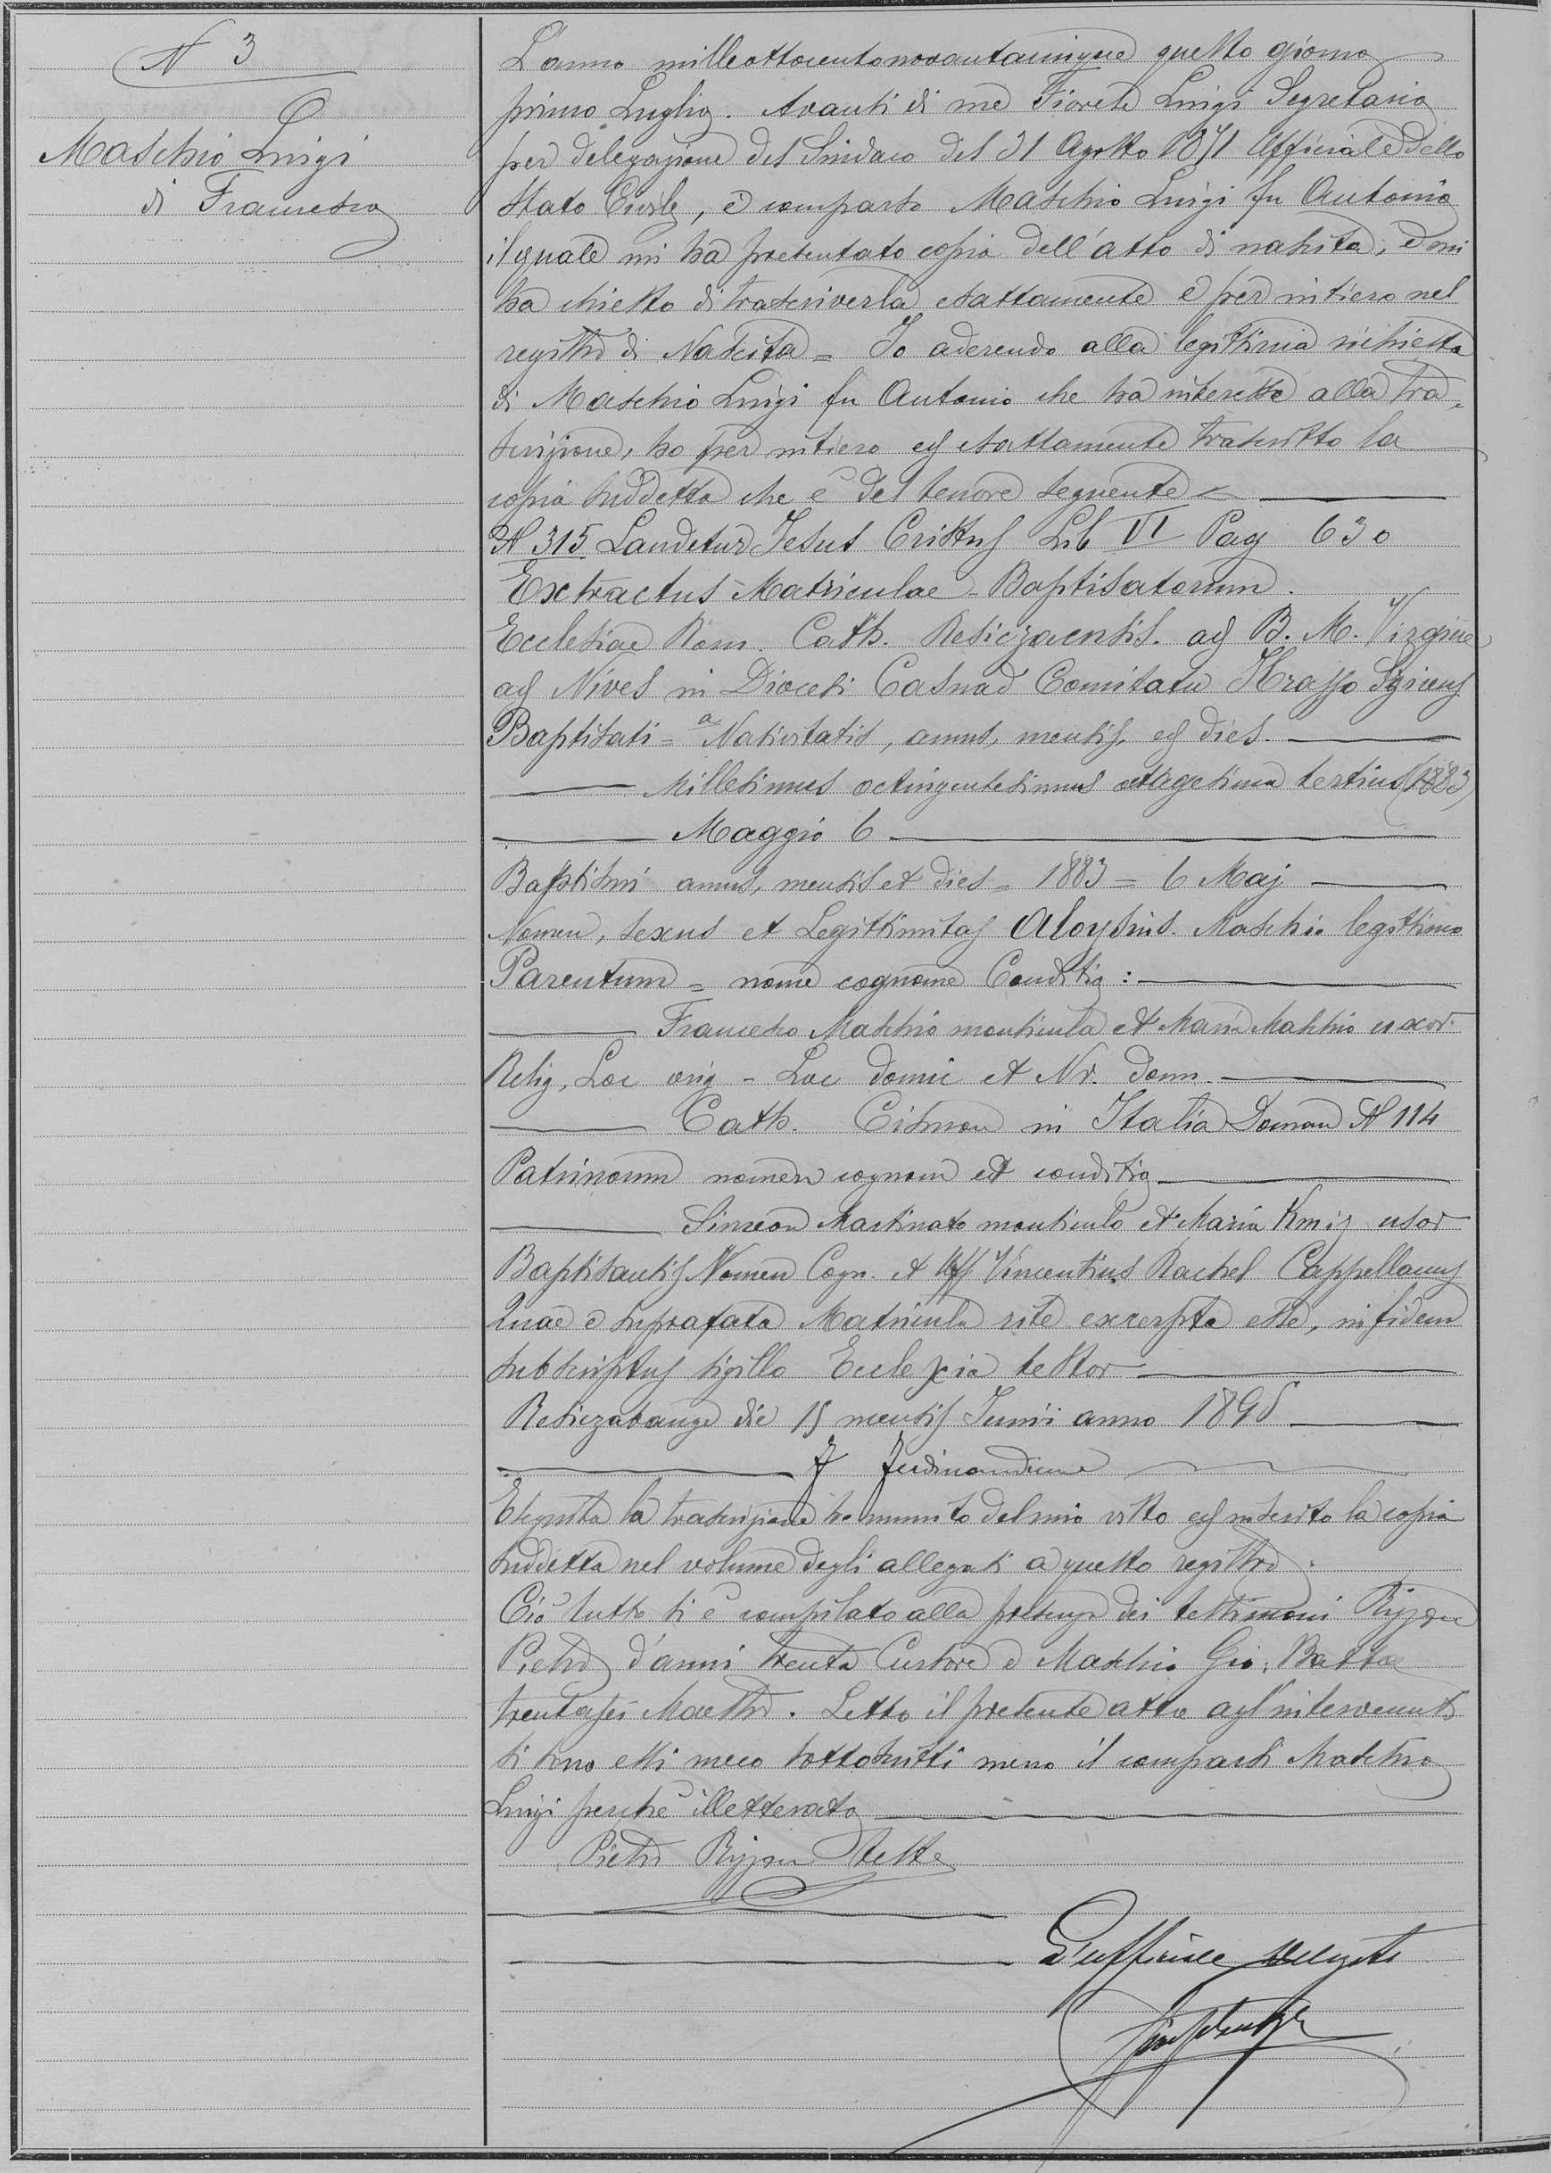 N 3
Maschio Luigi
di Francesco
L'anno milleottocentonovantacinque questo giorno
primo Luglio. Avanti di me Fiorese Luigi Segretario
per delegazione del Sindaco del 31 Agosto 1871 Ufficiale dello
Stato Civile, è comparso Maschio Luigi fu Antonio
il quale mi ha presentato copia dell'atto di nascita, e mi
ha chiesto di trascriverla esattamente e per intiero nel
registro di Nascita = Io aderendo alla legittima richiesta
di Maschio Luigi fu Antonio che ha interesse alla tra=
scrizione, ho per intiero ed esattamente trascritto la
copia suddetta che è del tenore seguente
N 315 Laudetur Jesus Cristus Lib VI Pag 630
Extractus Matriculae Baptisatorum.
Eclesiae Rom. Cath. Resiczaensis. ad B. M. Virgine
ad Nives in Diocesi Casnad Comitatu Krasso
Baptisati = a Nativitatis, annus, mensis, ed dies.
Millesimus octingentesimus octagesimus tertius (1883)
Maggio 6
Baptismi annus, mensis et dies = 1883 = 6 Maj
Nomen, sexus et Legittimitas Aloysius. Maschio legittimo
Parentum = nome cognome Conditio :
Francesco Maschio et Maria Maschio uxor.
Relig, Loc orig - Loc domic et Nr. dom.
Cath. Cismon in Italia Doman N 114
Patrinorum nomen cognom et conditio
Simeon Martinato et Maria Kmij usor
Baptisantis Nomen Cogn. et Uff Vincentius Rachel Cappellanus
Quae e suprafata Matricula rite excerpta esse, in fidem
subscriptus sigillo Eclexia testor
Resiczabanya die 15 mensis Junii anno 1895
Eseguita la trascrizione ho munito del mio visto ed inserito la copia
suddetta nel volume degli allegati a questo registro.
Ciò tutto si è compilato alla presenza dei testimoni Rizzon
Pietro d'anni trenta Cursore e Maschio Gio: Batta
trentasei Maestro. Letto il presente atto agl'intervenuti
si sono essi meco sottoscritti meno il comparso Maschio
Luigi perchè illetterato
Pietro Rizzon Teste
L'ufficiale delegato